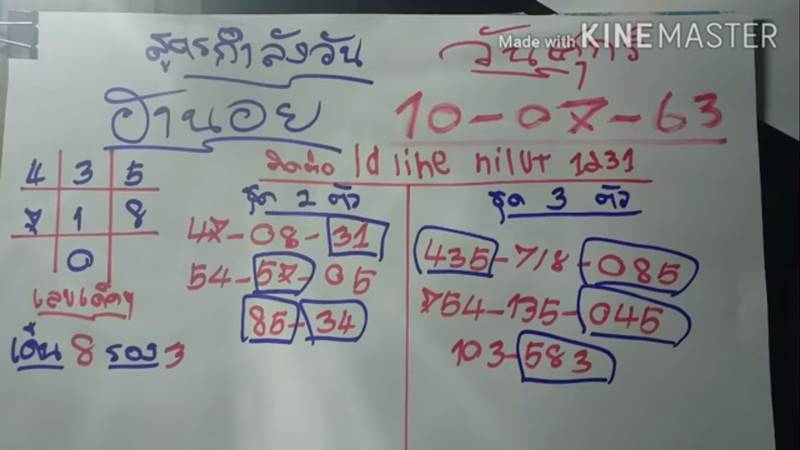 สูตรกำลังวัน วันศุกร์
Made with KINEMASTER
ฮานอย 10-07-63
ติดต่อ Id line nilut 1231
4 3 5
7 1 8
0
เลขเด็ดๆ
เด่น 8 รอง 3
ชุด 2 ตัว
47-08-31
54-57-05
85-34
ชุด 3 ตัว
435-718-085
754-135-045
103-583